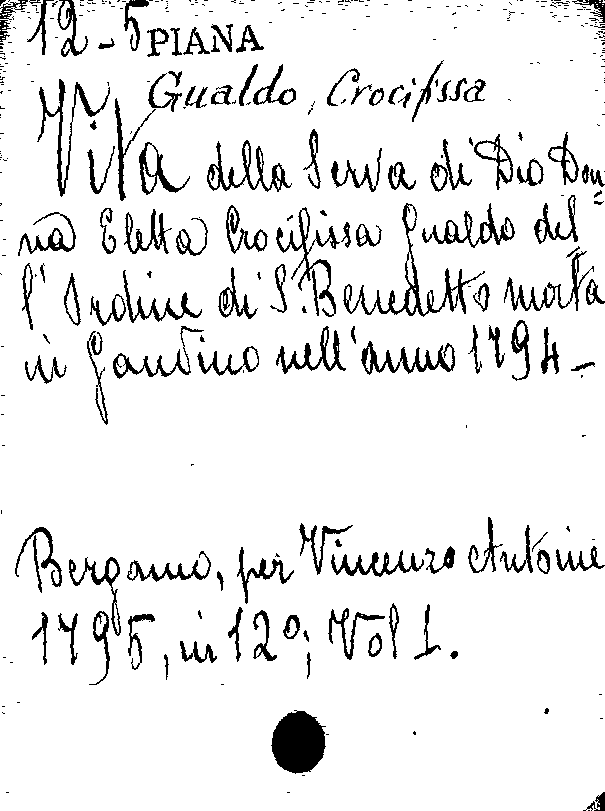 12-5 PIANA
Gualdo, Crocifissa
Vita della Serva di Dio Don=
na Eletta Crocifissa Gualdo del=
l'Ordine di S. Benedetto morta
in Gandino nell'anno 1794 -
Bergamo, per Vincenzo Antoine
1795, in 12º; Vol 1.